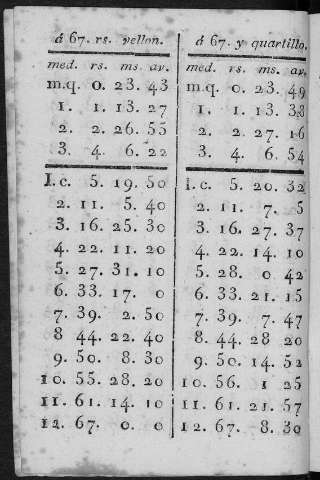 á 67. rs. vellon.
med. rs. ms. av.
m.q. 0. 23. 43
1. 1. 13. 27
2. 2. 26. 55
3. 4. 6. 22
1.c. 5. 19. 50
2. 11. 5. 40
3. 16. 25. 30
4. 22. 11. 20
5. 27. 31. 10
6. 33. 17. 0
7. 39. 2. 50
8 44. 22. 40
9. 50. 8. 30
10. 55. 28. 20
11. 61. 14. 10
12. 67. 0. 0
á 67. y quartillo.
med. rs. ms. av.
m.q. 0. 23. 49
1. 1. 13. 38
2. 2. 27. 16
3. 4. 6. 54
1.c. 5. 20. 32
2. 11. 7. 5
3. 16. 27. 37
4. 22. 14. 10
5. 28. 0 42
6. 33. 21. 15
7. 39. 7. 47
8. 44. 28 20
9. 50. 14. 52
10. 56. 1 25
11. 61. 21. 57
12. 67. 8. 30